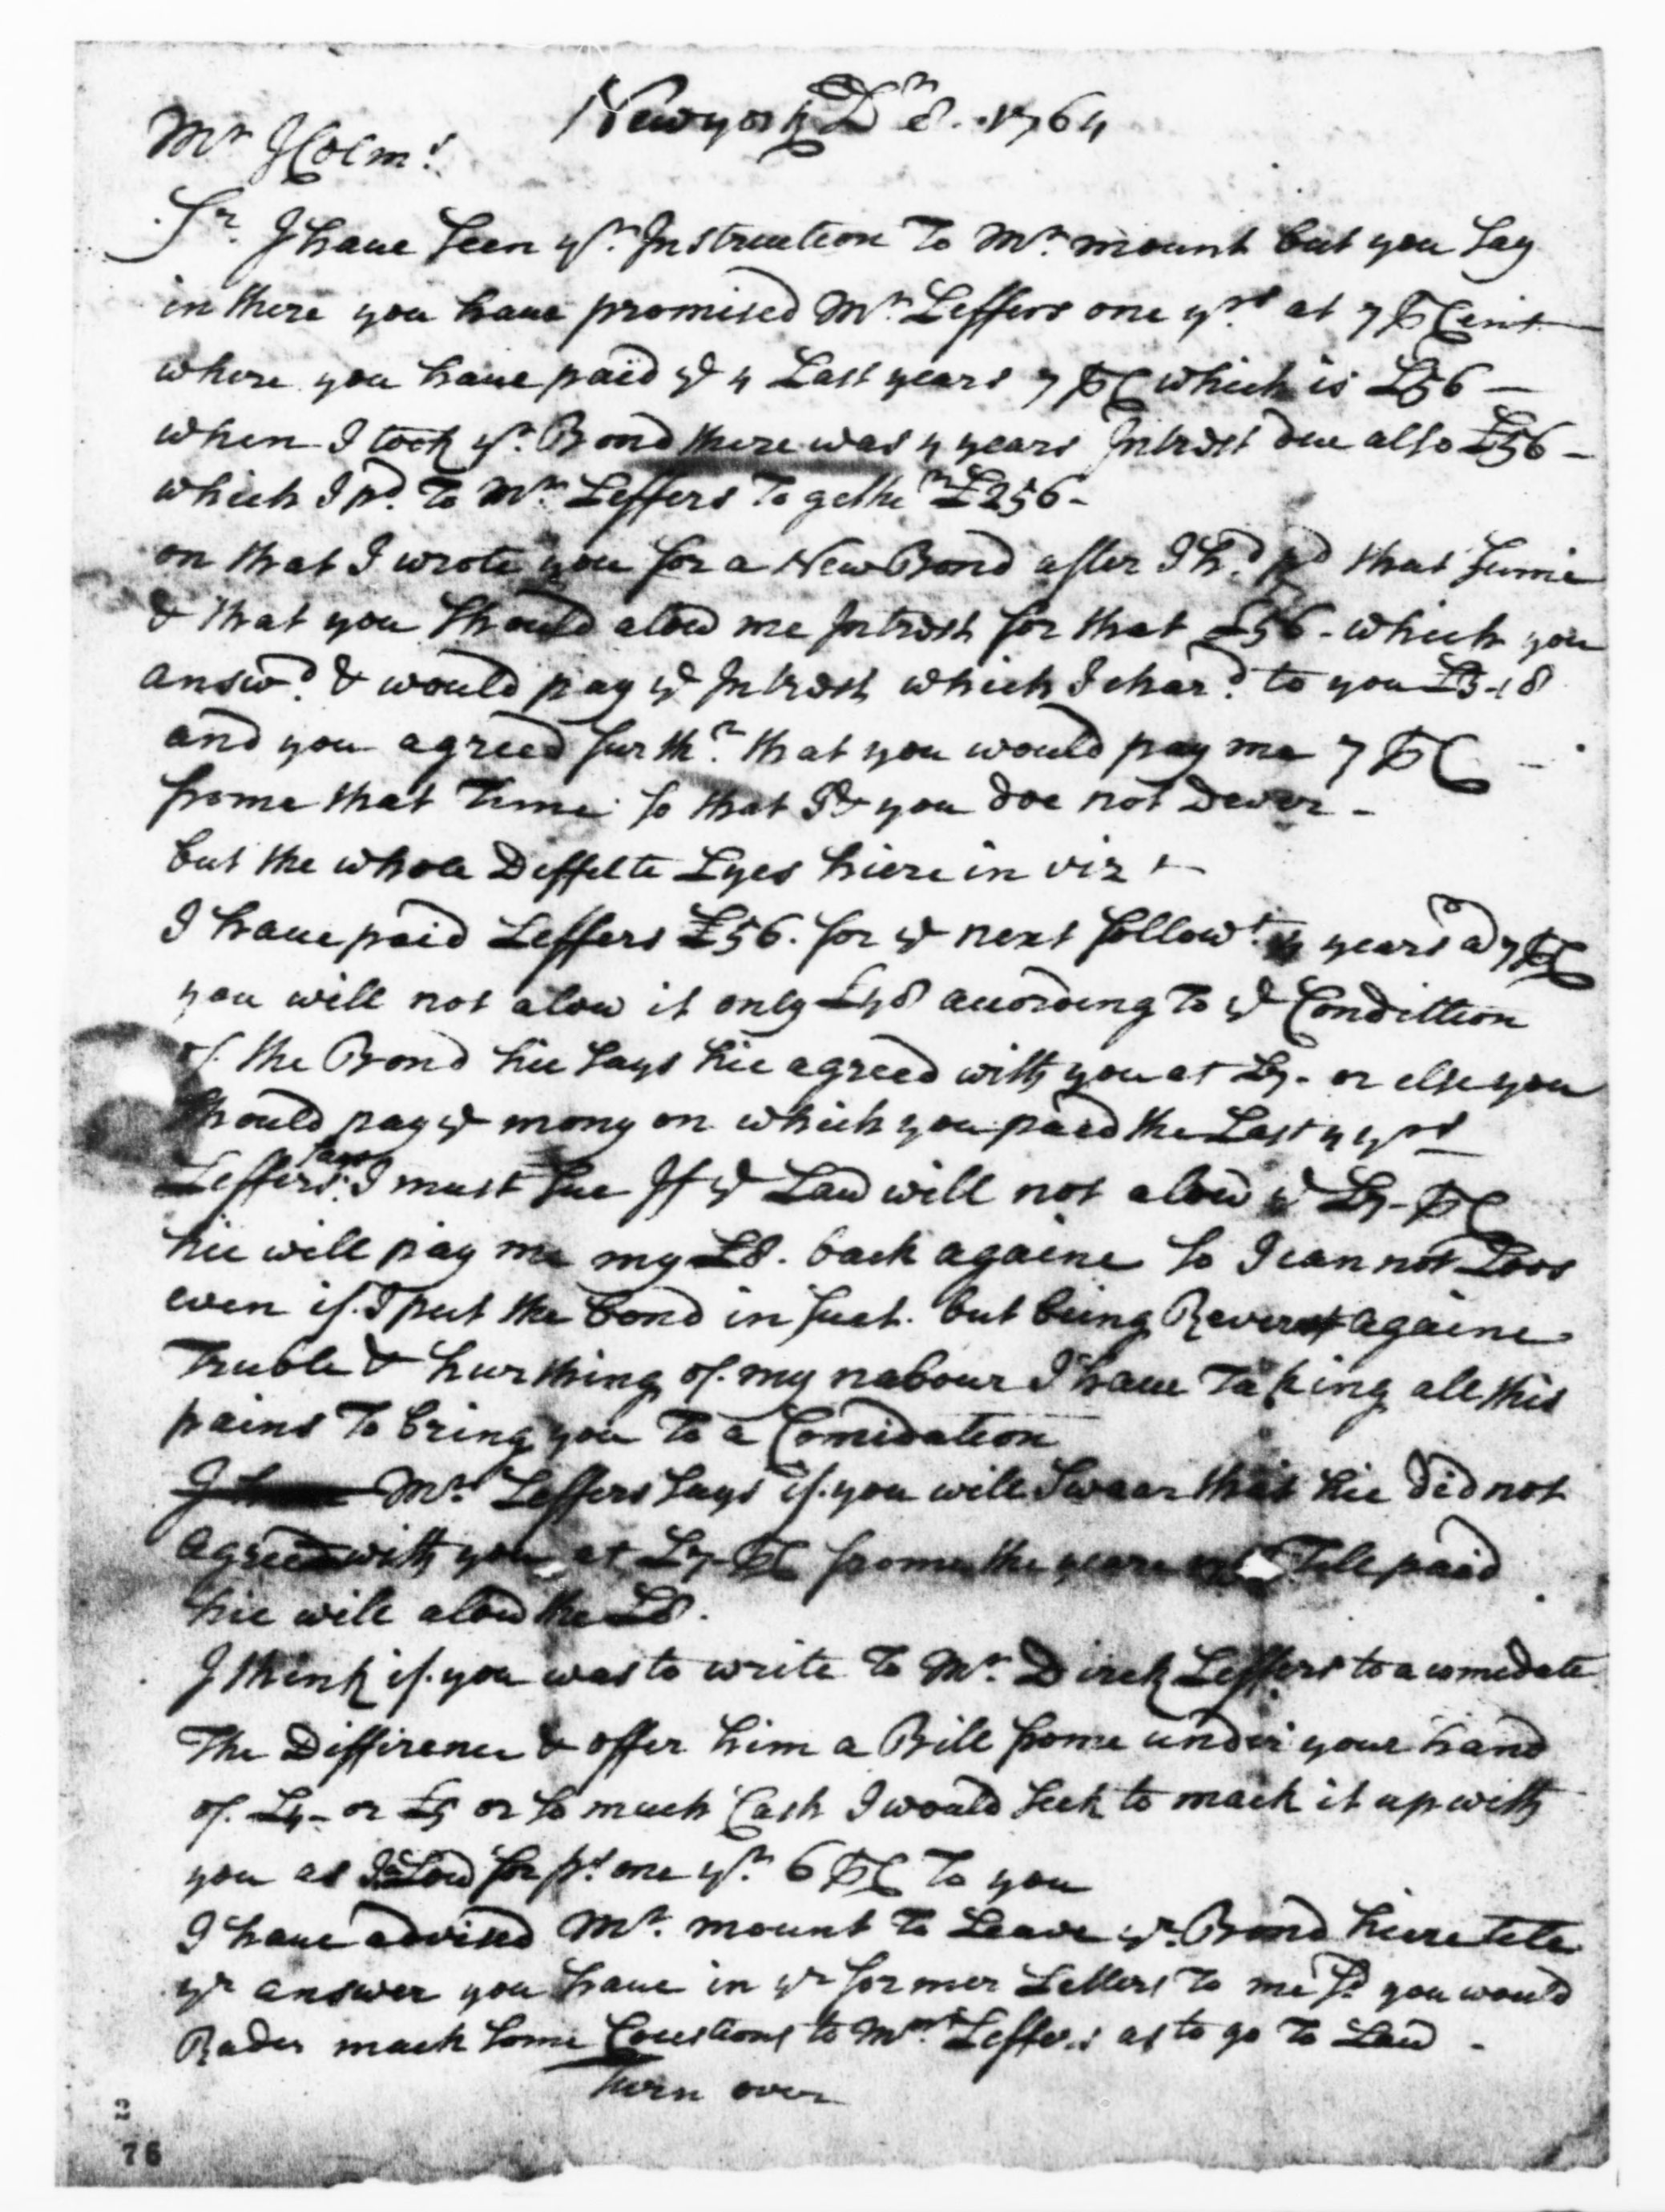 Newyork D 8. 1764
Mr Holms
Sr. I haue seen yr. Instruction To Mr. mount but you say
in there you haue promised Mr. Leffers one yrs at 7 PCent
where you haue paid ye 4 Last years 7 PC which is £56 —
when I took yr. Bond there was 4 years Intrest due also £56 —
which I pd. To Mr. Leffers To gether £256 -
on that I wrote you for a New Bond after I hd. pd that sume
& that you should alow me Intrest for that £56 - which you
answd. & would pay ye Intrest which I chard. to you £3 - 18
and you agreed furthr. that you would pay me 7 PC —
frome that Time so that I & you doe not Dever -
but the whole Deffelte Lyes hiere in viz
I haue paid Leffers £56. for ye next follow 4 years a 7 PC
you will not alow it only £48 acording To ye Condittion
of the Bond hie says hie agreed with you at £7 - or else you
should pay ye mony on which you paed the Last 4 yrs
Leffers says I must sue If ye Law will not alow ye £7 - PC
hie will pay me my £8. back againe so I can not Loos
even if I put the bond in suet. but being againe
Truble & hurthing of my nabour I haue Taking all this
pains To bring you To a Comidation
Mr. Leffers says if you will Swear that hie did not
agreed with you at £7 - PC frome the yeare Tell paid
hie will alow the £8.
I think if you was to write To Mr. Dirck Leffers to acomedate
The Diffirence & offer him a Bill frome under your hand
of £4 - or £5 or so much Cash I would seek to mack it up with
you as I alow for one yr. 6 PC To you
I haue advised Mr. mount To Leave yr. Bond hiere tele
yr answer you haue in yr former Letters To me sd you would
Rader mack some to Leffers as to go To Law -
Turn over
2
76